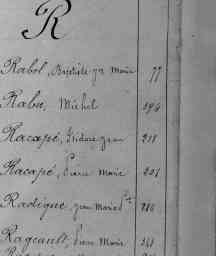 R
Rabol, Baptiste Jn Marie 77
Rabu, Michel 194
Racapé, Isidore Jean 218
Racapé, Pierre Marie 201
Radigue, Jean Marie Bte 210
Rageault, Pierre Marie 141